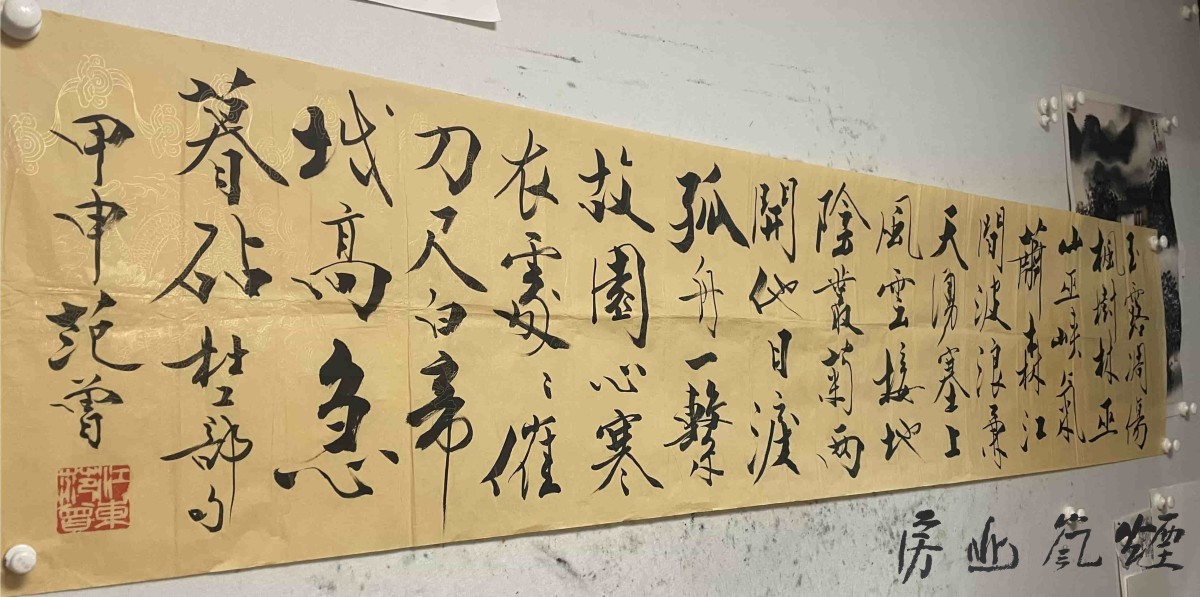 玉露凋傷
楓樹林巫
山巫峽氣
蕭森江
間波浪兼
天湧塞上
風雲接地
陰叢菊兩
開他日淚
孤舟一繫
故園心寒
衣處〻催
刀尺白帝
城高急
暮砧杜工部句
甲申范曾
江東范曾